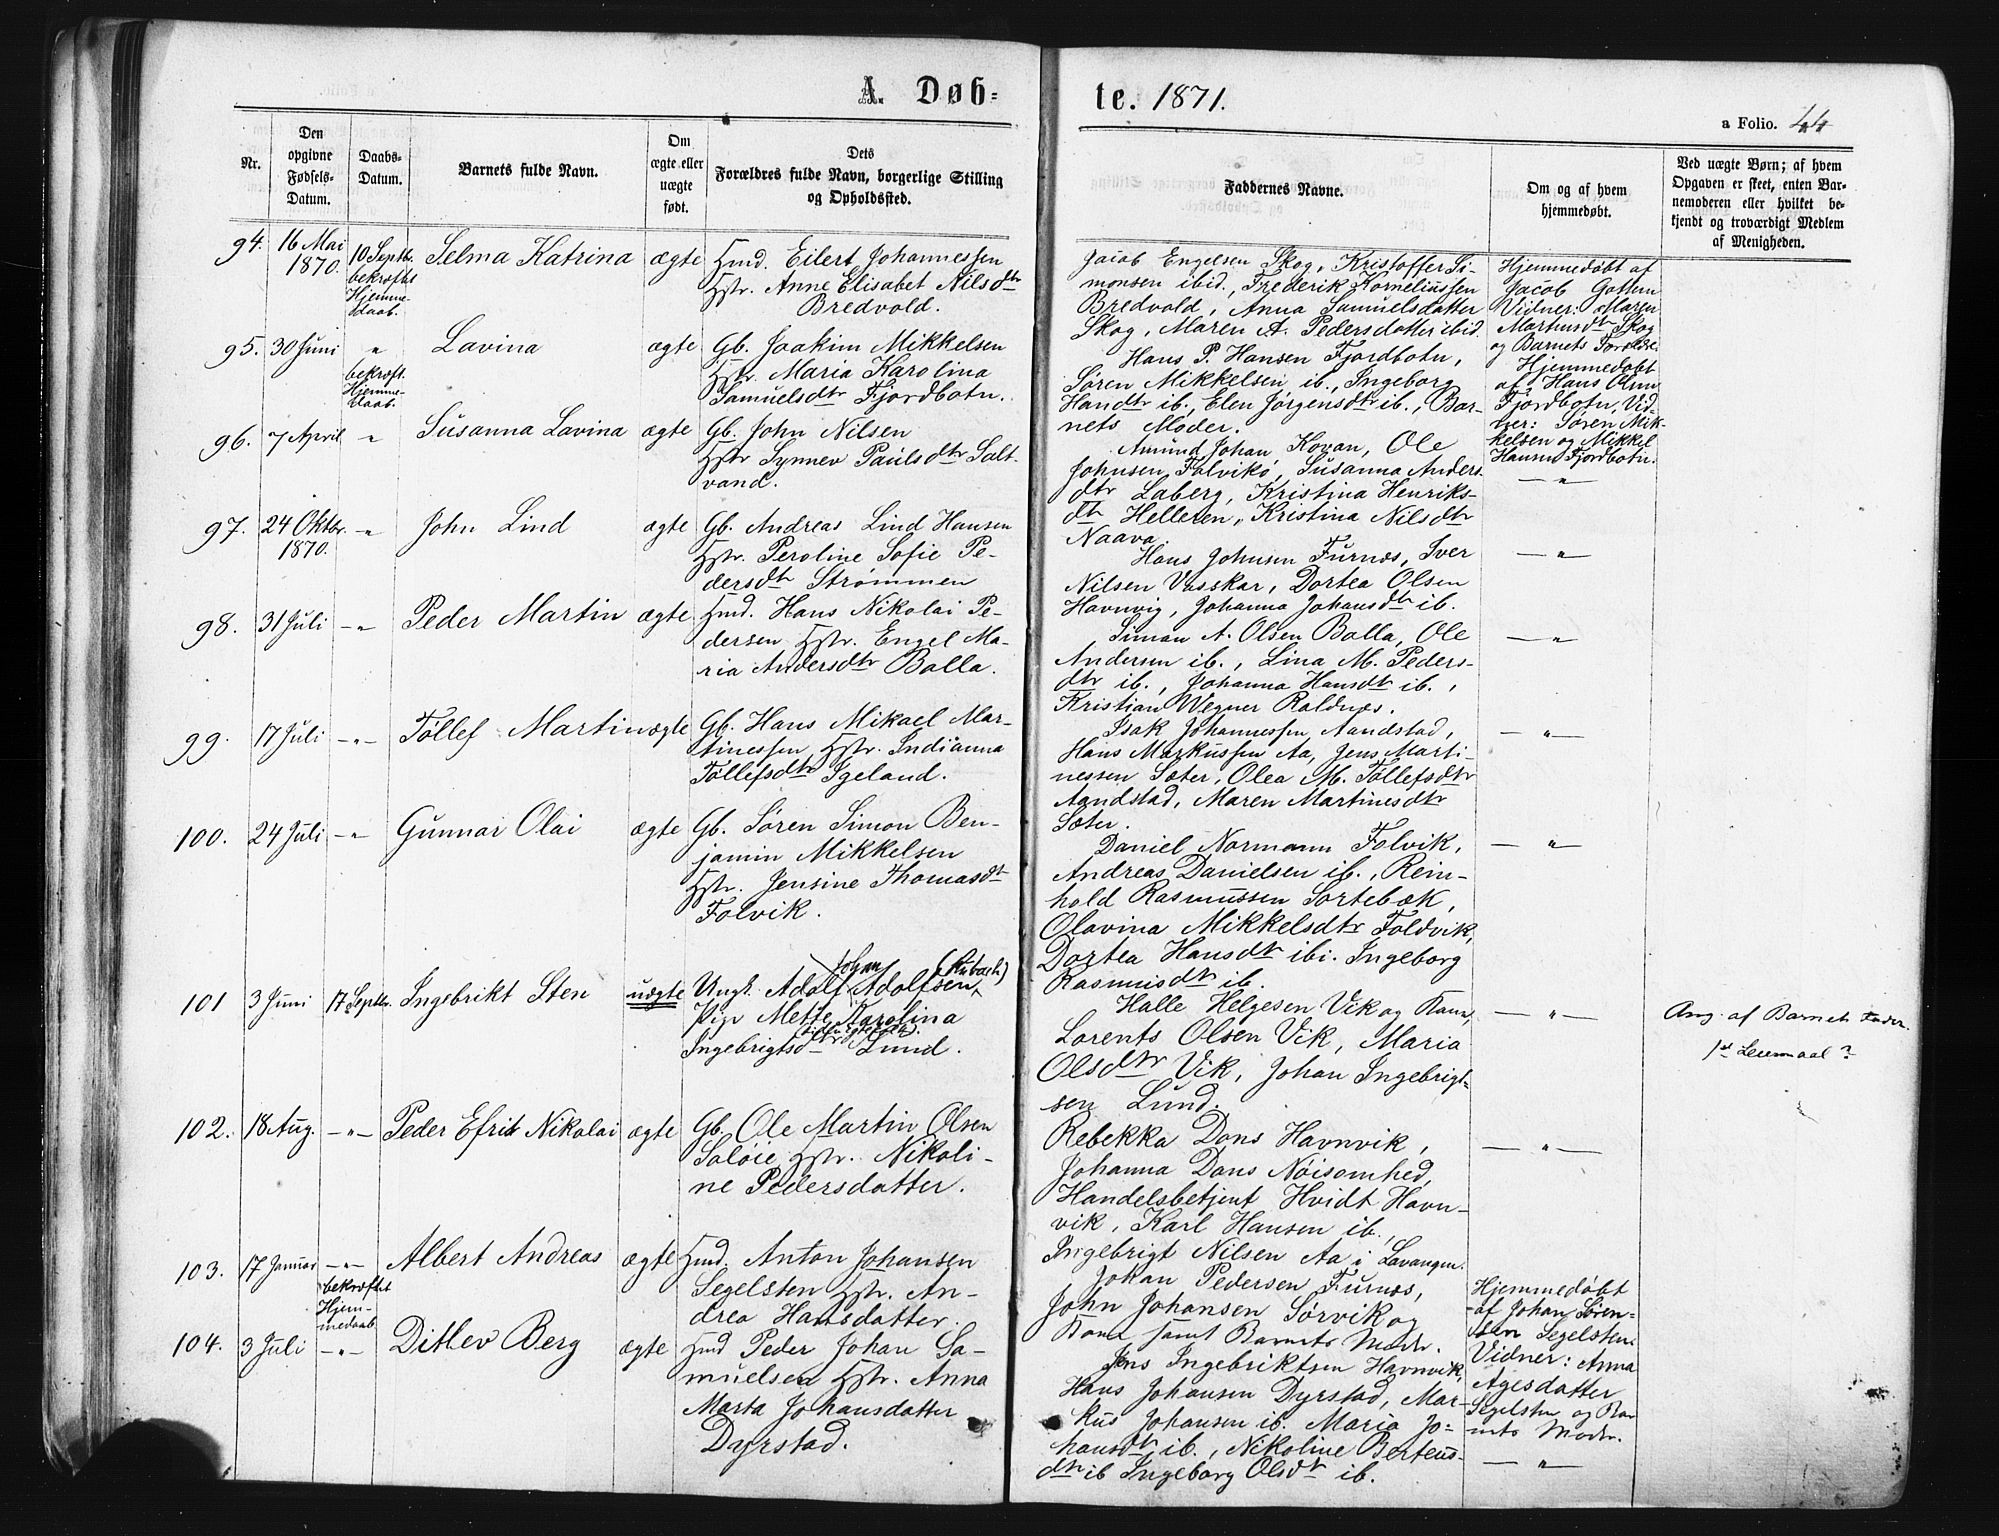 A. Døb=
te. 1871.
a Folio. 44
Nr.
Den
opgivne
Fødsels-
Datum.
Daabs-
Datum.
Barnets fulde Navn.
Om
ægte eller
uægte
født.
Dets
Forældres fulde Navn, borgerlige Stilling
og Opholdssted.
Faddernes Navne.
Om og af hvem
hjemmedøbt.
Ved uægte Børn; af hvem
Opgaven er skeet, enten Bar-
nemoderen eller hvilket be-
kjendt og troværdigt Medlem
af Menigheden.
94. 16 Mai
1870.
10 Septbr.
bekræftet
Hjemme-
daab.
Selma Katrina
ægte
Hmd. Eilert Johannessen
Hstr. Anne Elisabet Nilsdtr
Bredvold.
Jacob Engelsen Skog, Kristoffer Si-
monsen ibid., Frederik Korneliussen
Bredvold, Anna Samuelsdatter
Skog, Maren A. Pedersdatter ibid.
Hjemmedøbt af
Jacob
Vidner: Maren
Skog
og Barnets Forældre.
95. 30 Juni
"
bekræft.
Hjemme-
daab.
Lavina
ægte
Gb. Joakim Mikkelsen
Hstr. Maria Karolina
Samuelsdtr Fjordbotn.
Hans P. Hansen Fjordbotn,
Søren Mikkelsen ib., Ingeborg
Handtr ib., Elen Jørgensdtr ib., Bar-
nets Moder.
Hjemmedøbt
af Hans Olsen
Fjordbotn, Vid-
ner: Søren Mik-
kelsen og Mikkel
Hansen Fjordbotn.
96. 7 April
"
Susanna Lavina
ægte
Gb. John Nilsen
Hstr Synnev Paulsdtr Salt-
vand.
Amund Johan Kovan, Ole
Johnsen Folviko, Susanna Anders-
dtr Laberg, Kristina Henriks-
dtr Helleren, Kristina Nilsdtr
Naava.
— " —
97. 24 Oktbr.
1870.
— " —
John Lind
ægte
Gb. Andreas Lind Hansen
Hstr. Peroline Sofie Pe-
dersdtr Strømmen
Hans Johnsen Furnæs, Iver
Nilsen Vasskar, Dortea Olsen
Havnvig, Johanna Johansdtr ib.
— " —
98. 31 Juli
— " —
Peder Martin
ægte
Hmd. Hans Nikolai Pe-
dersen Hstr. Engel Ma-
ria Andersdtr Bolla.
Simon A. Olsen Bolla, Ole
Andersen ib., Lina M. Peders-
dtr ib., Johanna Hansdtr ib.,
Kristian Wegner Roldnæs.
— " —
99. 17 Juli
— " —
Tøllef Martin
ægte
Gb. Hans Mikael Mar-
tinessen, Hstr. Indianna
Tøllefsdtr Igeland.
Isak Johannessen Aandstad,
Hans Markussen Aa, Jens Marti-
nessen Sæter, Olea M. Tøllefsdtr
Aandstad, Maren Martinesdtr
Sæter.
— " —
100. 24 Juli
— " —
Gunnar Olai
ægte
Gb. Søren Simon Ben-
jamin Mikkelsen
Hstr. Jensine Thomasdt
Folvik.
Daniel Normann Folvik,
Andreas Danielsen ib., Rein-
hold Rasmussen Sortebæk,
Olavina Mikkelsdtr Foldvik,
Dortea Hansdtr ibi. Ingeborg
Rasmusdtr ib.
— " —
101 3 Juni
17 Septbr.
Ingebrikt Sten
uægte
Johan
Ungk. Adolf Adolfsen,
Pige Mette Karolina
Ingebrigtsdtr Lund.
Halle Helgesen Vik og Kone,
Lorents Olsen Vik, Maria
Olsdtr Vik, Johan Ingebrigt-
sen Lund.
— " —
Ang. af Barnets Fader.
1st Leiermaal?
102. 18 Aug.
— " —
Peder Efrit Nikolai
ægte
Gb. Ole Martin Olsen
Soløie Hstr. Nikoli-
ne Pedersdatter.
Rebekka Dons Havnvik,
Johanna Dons Nøisomhed,
Handelsbetjent Hvidt Havn-
vik, Karl Hansen ib.,
Ingebrigt Nilsen Aa i Lavangen.
— " —
103. 17 Januar
— " —
bekræftet
Hjem-
medaab
Albert Andreas
ægte
Hmd. Anton Johansen
Segelsten Hstr. An-
drea Hansdatter.
Johan Pedersen Furnæs,
John Johansen Sørvik og
Kone samt Barnets Moder.
Hjemmedøbt
af Johan Søren-
sen Segelsten.
Vidner: Anna
Agesdatter
Segelsten og Bar
nets Moder.
104. 3 Juli
— " —
Ditlev Berg
ægte
Hmd Peder Johan Sa-
muelsen Hstr. Anna
Marta Johansdatter
Dyrstad.
Jens Ingebriktsen Havnvik,
Hans Johansen Dyrstad, Mar-
kus Johansen ib. Maria Jo-
hansdtr ib., Nikoline Berteus-
dtr ib Ingeborg Olsdtr ib.
— " —